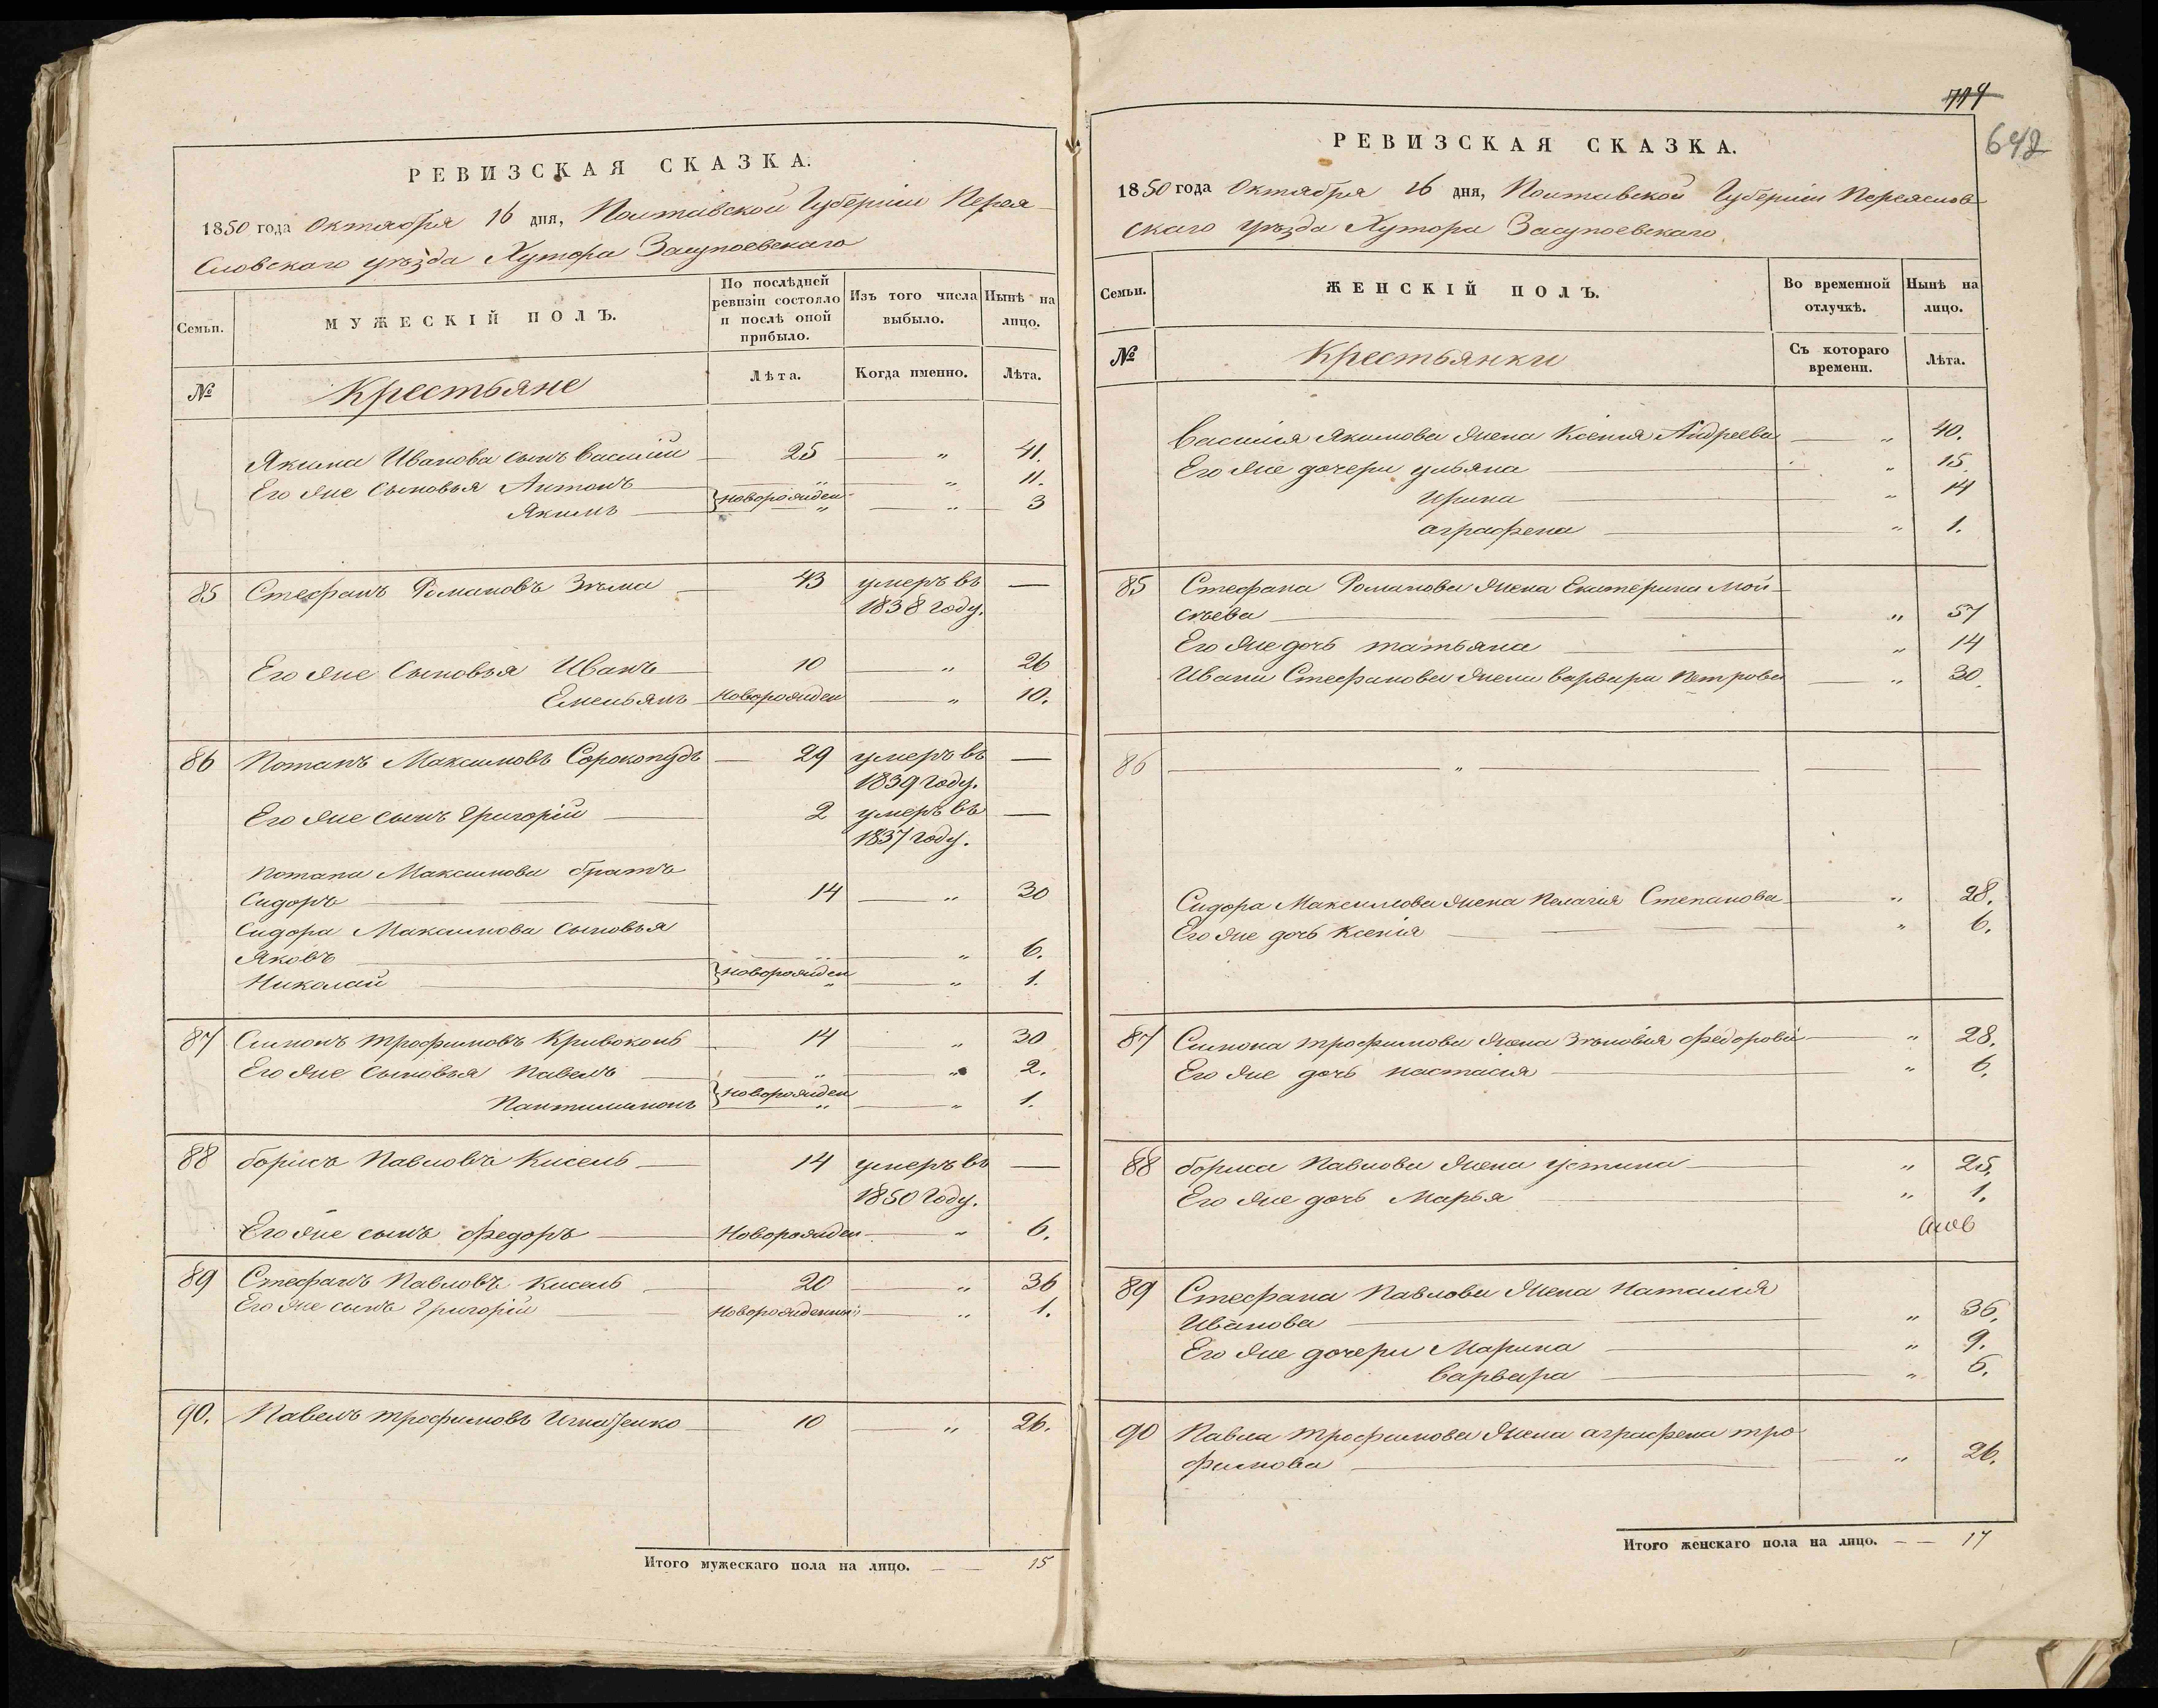 РЕВИЗСКАЯ СКАЗКА.
1850 года Октября 16 дня, Полтавской Губернiи Перея-
словскаго уѣзда Хутора Засупоевскаго
Семьи.
МУЖЕСКIЙ ПОЛЪ.
По послѣдней ревизiи состояло и послѣ оной прибыло.
Изъ того числа выбыло.
Нынѣ на лицо.
№ Крестьяне Лѣта. Когда именно. Лѣта.
Якима Иванова сынъ Василiй — 25 — „ 41.
Его же сыновья Антонъ — „ — „ 11.
новорожден
Якимъ — „ — „ 3
85 Стефанъ Романовъ Зѣма — 43 умеръ въ —
1838 году.
Его же сыновья Иванъ — 10 — „ 26
Емельянъ — новорожден — „ 10.
86 Потапъ Максимовъ Сорокопудъ — 29 умеръ въ —
1839 году.
Его же сынъ Григорiй — 2 умеръ въ —
1837 году.
Потапа Максимова братъ
Сидоръ — 14 — „ 30
Сидора Максимова сыновья
Яковъ — „ — „ 6.
новорожден
Николай — „ — „ 1.
87 Симонъ Трофимовъ Кривоконь — 14 „ 30
Его же сыновья Павелъ — „ — „ 2.
новорожден
Пантилимонъ — „ — „ 1.
88 Борисъ Павловъ Кисель — 14 умеръ въ —
1850 году.
Его же сынъ Федоръ — Новорожден — „ 6.
89 Стефанъ Павловъ Кисель — 20 — „ 36
Его же сынъ Григорiй — новорожденный — „ 1.
90. Павелъ Трофимовъ — 10 — „ 26.
Итого мужескаго пола на лицо. — — 15
719
642
РЕВИЗСКАЯ СКАЗКА.
1850 года Октября 16 дня, Полтавской Губернiи Переяслов-
скаго уѣзда Хутора Засупоевскаго
Семьи.
ЖЕНСКIЙ ПОЛЪ.
Во временной отлучкѣ.
Нынѣ на лицо.
№ Крестьянки Съ котораго времени. Лѣта.
Василия Якимова жена Ксенiя Андреева — „ 40.
Его же дочери Ульяна — „ 15.
Ирина — „ 14
Аграфена — „ 1.
85 Стефана Романова жена Екатерина Мой-
сѣева — „ 57
Его же дочь Татьяна — „ 14
Ивана Стефанова жена Варвара Петрова — „ 30.
86 — „ — — —
Сидора Максимова жена Пелагiя Степанова — „ 28.
Его же дочь Ксенiя — „ 6.
87 Симона Трофимова жена Зѣновiя Федорова — „ 28.
Его же дочь Настасiя — „ 6.
88 Бориса Павлова жена Устина — „ 25.
Его же дочь Марья — „ 1.
89 Стефана Павлова жена Наталiя
Иванова — „ 36.
Его же дочери Марина — „ 9.
Варвара — „ 6.
90 Павла Трофимова жена Аграфена Тро-
фимова — „ 26.
Итого женскаго пола на лицо. — — 17